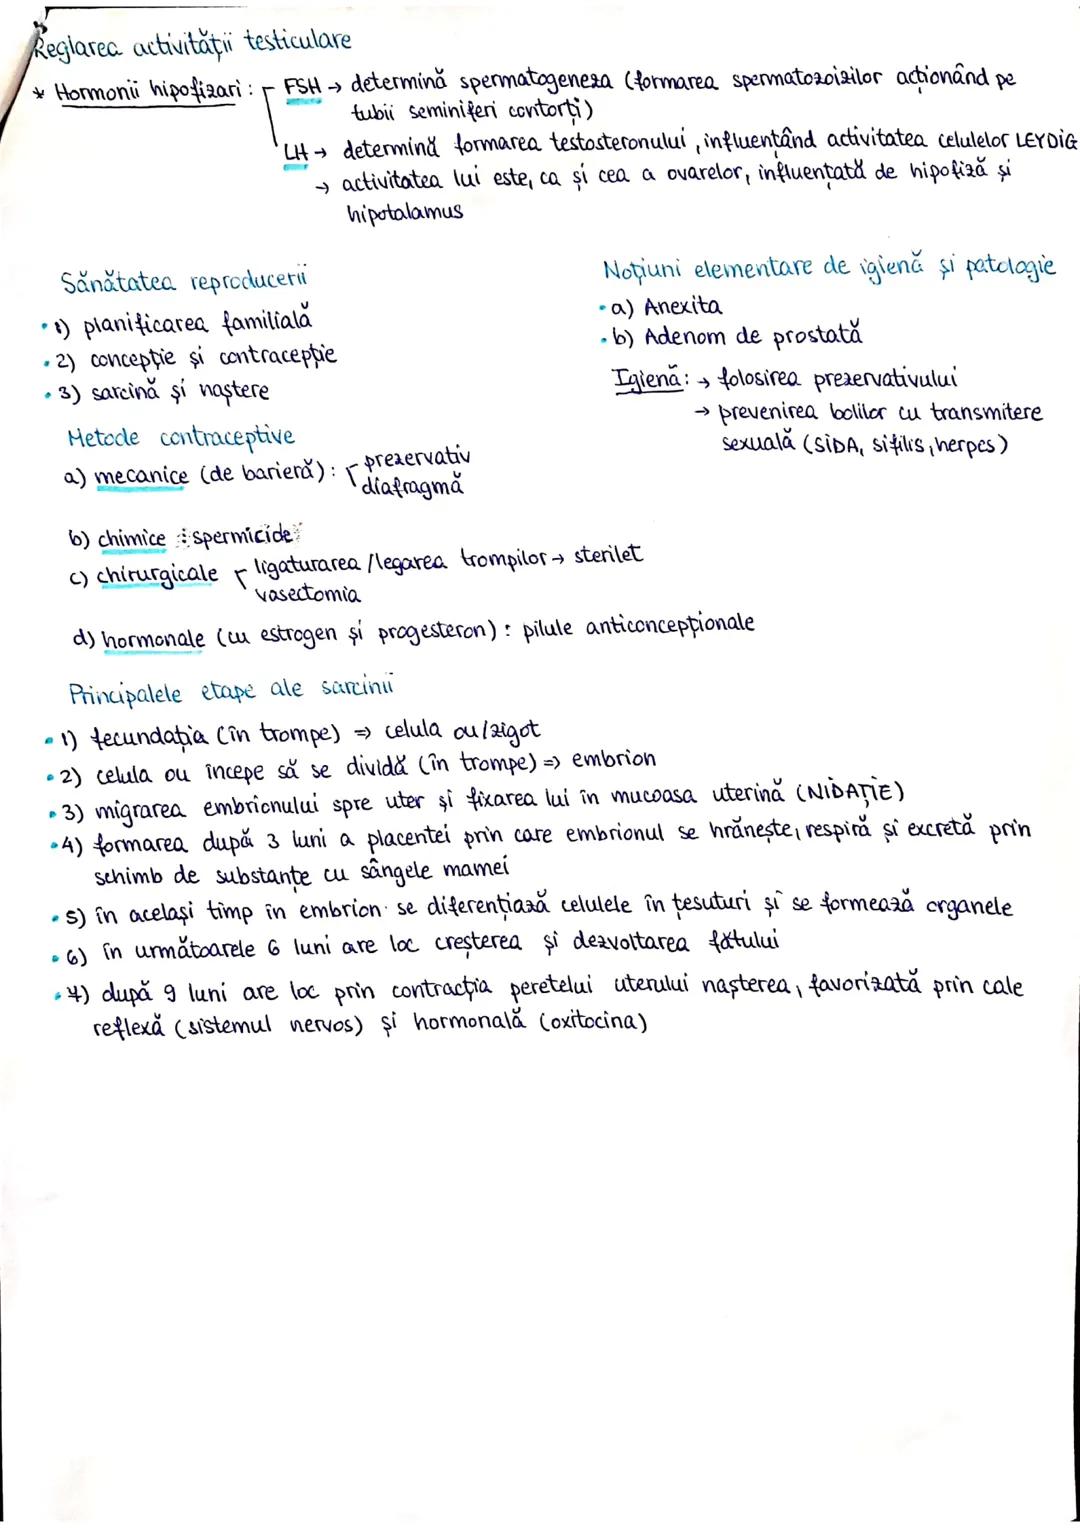 Reglarea activității testiculare
* Hormonii hipofizari: FSH → determină spermatogeneza (formarea spermatozoizilor acționând pe
tubii seminiferi contorți)
LH → determină formarea testosteronului, influențând activitatea celulelor LEYDIG
→ activitatea lui este, ca și cea a ovarelor, influențată de hipofiză și
hipotalamus
Sănătatea reproducerii
• 1) planificarea familială
• 2) concepție și contracepție
• 3) sarcină și naștere
Metode contraceptive
a) mecanice (de barieră): prezervativ
diafragmă
b) chimice : spermicide
c) chirurgicale ligaturarea/legarea trompilor → sterilet
vasectomia
d) hormonale (cu estrogen și progesteron): pilule anticoncepționale
Noțiuni elementare de igienă și patologie
• a) Anexita
• b) Adenom de prostată
Igienă: → folosirea prezervativului
→ prevenirea bolilor cu transmitere
sexuală (SIDA, sifilis, herpes)
Principalele etape ale sarcinii
• 1) fecundația (în trompe) ⇒ celula ou/zigot
• 2) celula ou începe să se dividă (în trompe) ⇒ embrion
• 3) migrarea embrionului spre uter și fixarea lui în mucoasa uterină (NIDAȚIE)
• 4) formarea după 3 luni a placentei prin care embrionul se hrănește, respiră și excretă prin
schimb de substanțe cu sângele mamei
• 5) în același timp în embrion se diferențiază celulele în țesuturi și se formează organele
• 6) în următoarele 6 luni are loc creșterea și dezvoltarea fătului
• 7) după 9 luni are loc prin contracția peretelui uterului nașterea, favorizată prin cale
reflexă (sistemul nervos) și hormonală (oxitocina)